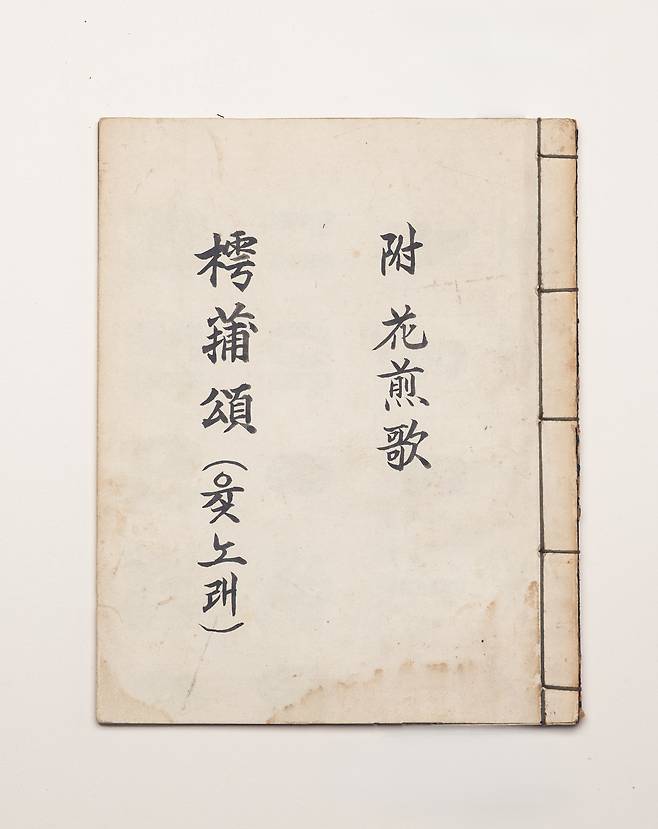 附 花煎歌
樗蒲頌(윷노래)